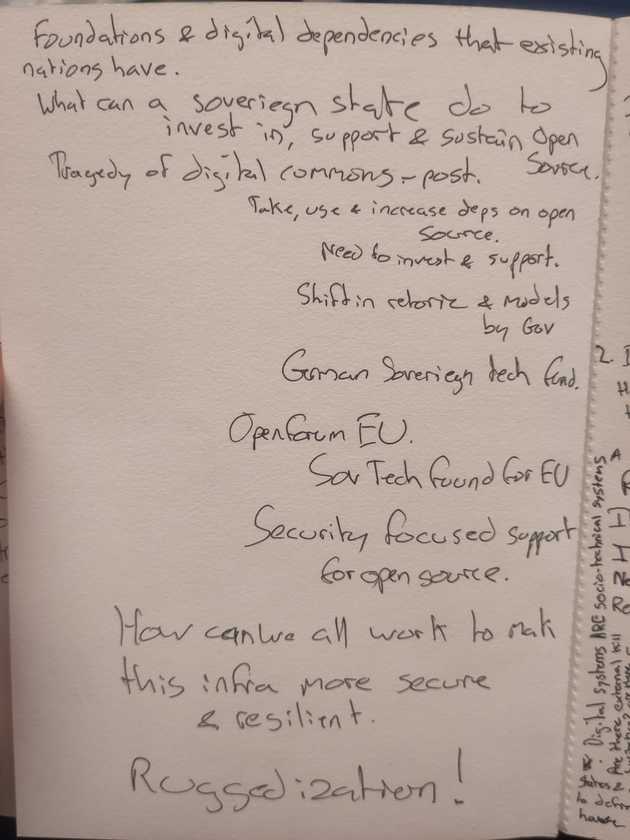 Foundations & digital dependencies that existing
nations have.
What can a soveriegn state do to
invest in, support & sustain Open
Source.
Tragedy of digital commons - post.
Take, use & increase deps on open
source.
Need to invest & support.
Shift in retoric & models
by Gov
German Soveriegn tech fund.
Openforum EU.
Sov Tech found for EU
Security focused support
for open source.
How can we all work to mak
this infra more secure
& resilient.
Ruggedization!
2.
Digital systems ARE socio-technical systems
Are there external kill
states &
to defin